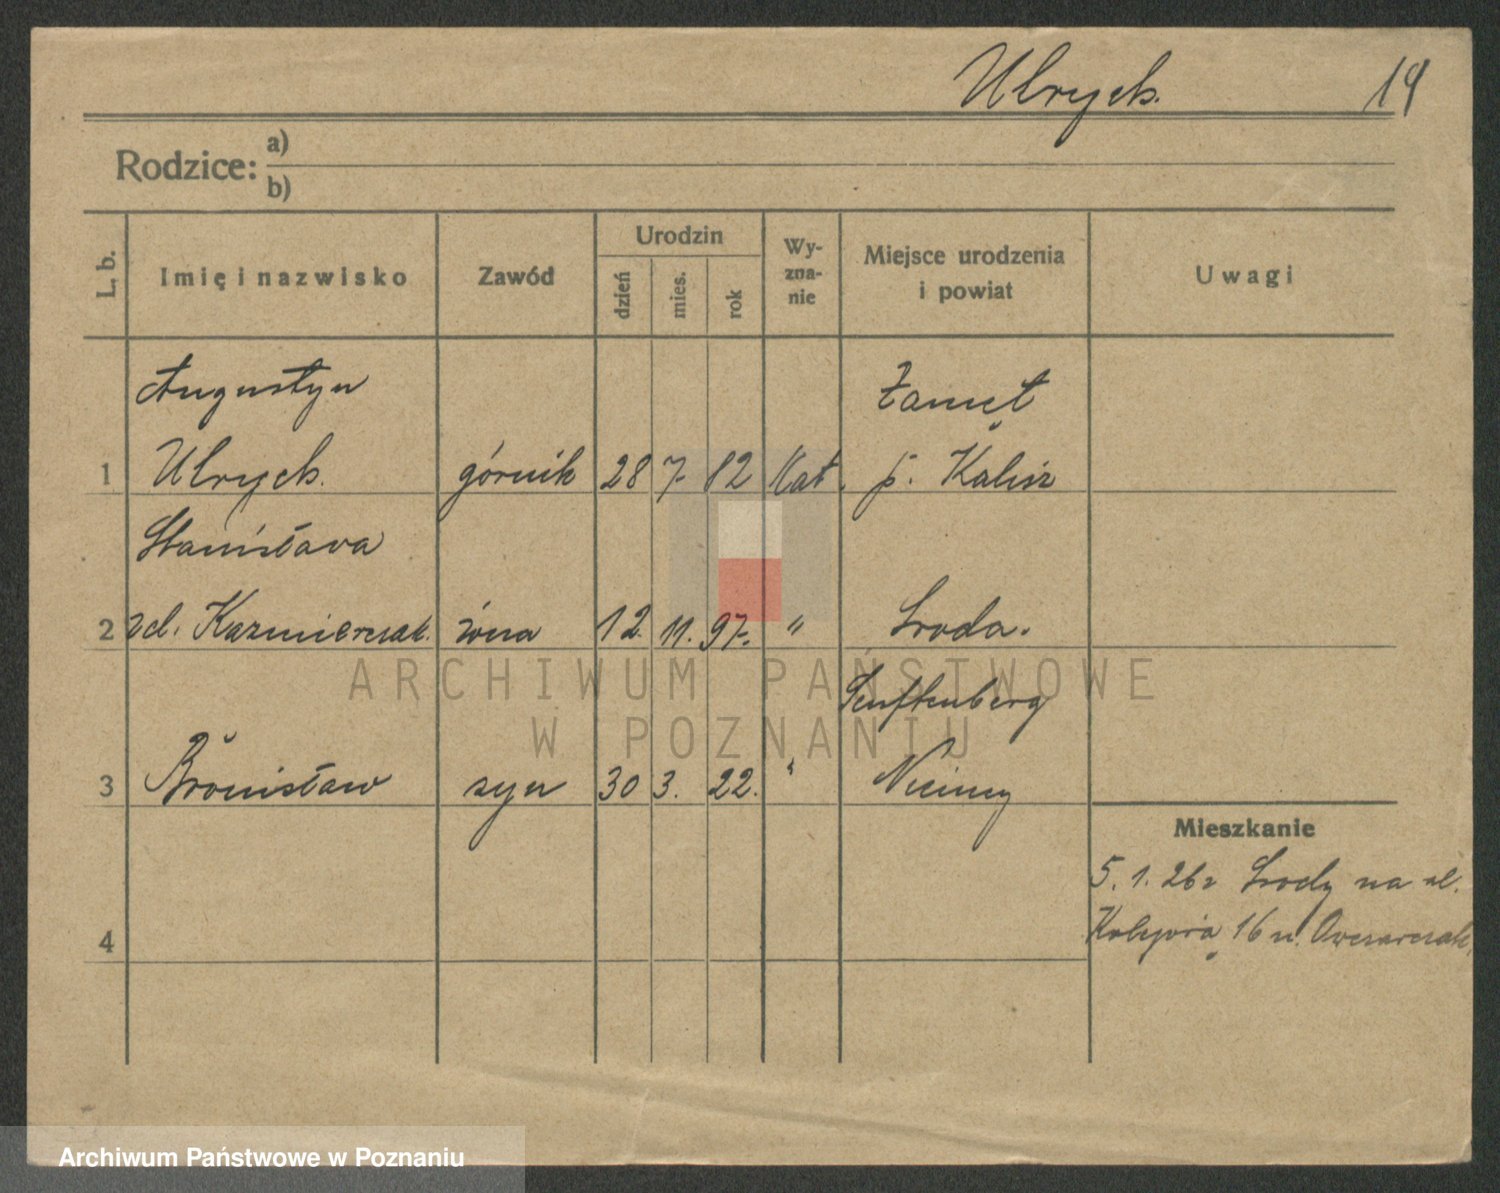 Ulrych. 14
Rodzice: a)
b)
L. b. Imię i nazwisko Zawód Urodzin dzień mies. rok Wy-zna-nie Miejsce urodzenia i powiat Uwagi
Augustyn
1 Ulrych. górnik 28 7. 82 Kat. p. Kalisz
Stanisława
2 zd. Kazmierczak. żona 12. 11. 97. " Środa.
Senftenberg
3 Bronisław syn 30 3. 22. " Niemcy
Mieszkanie
5. 1. 26 r Środy na ul.
4 Kolejowa 16 u. Owczarczak
ARCHIWUM PAŃSTWOWE
W POZNANIU
Archiwum Państwowe w Poznaniu